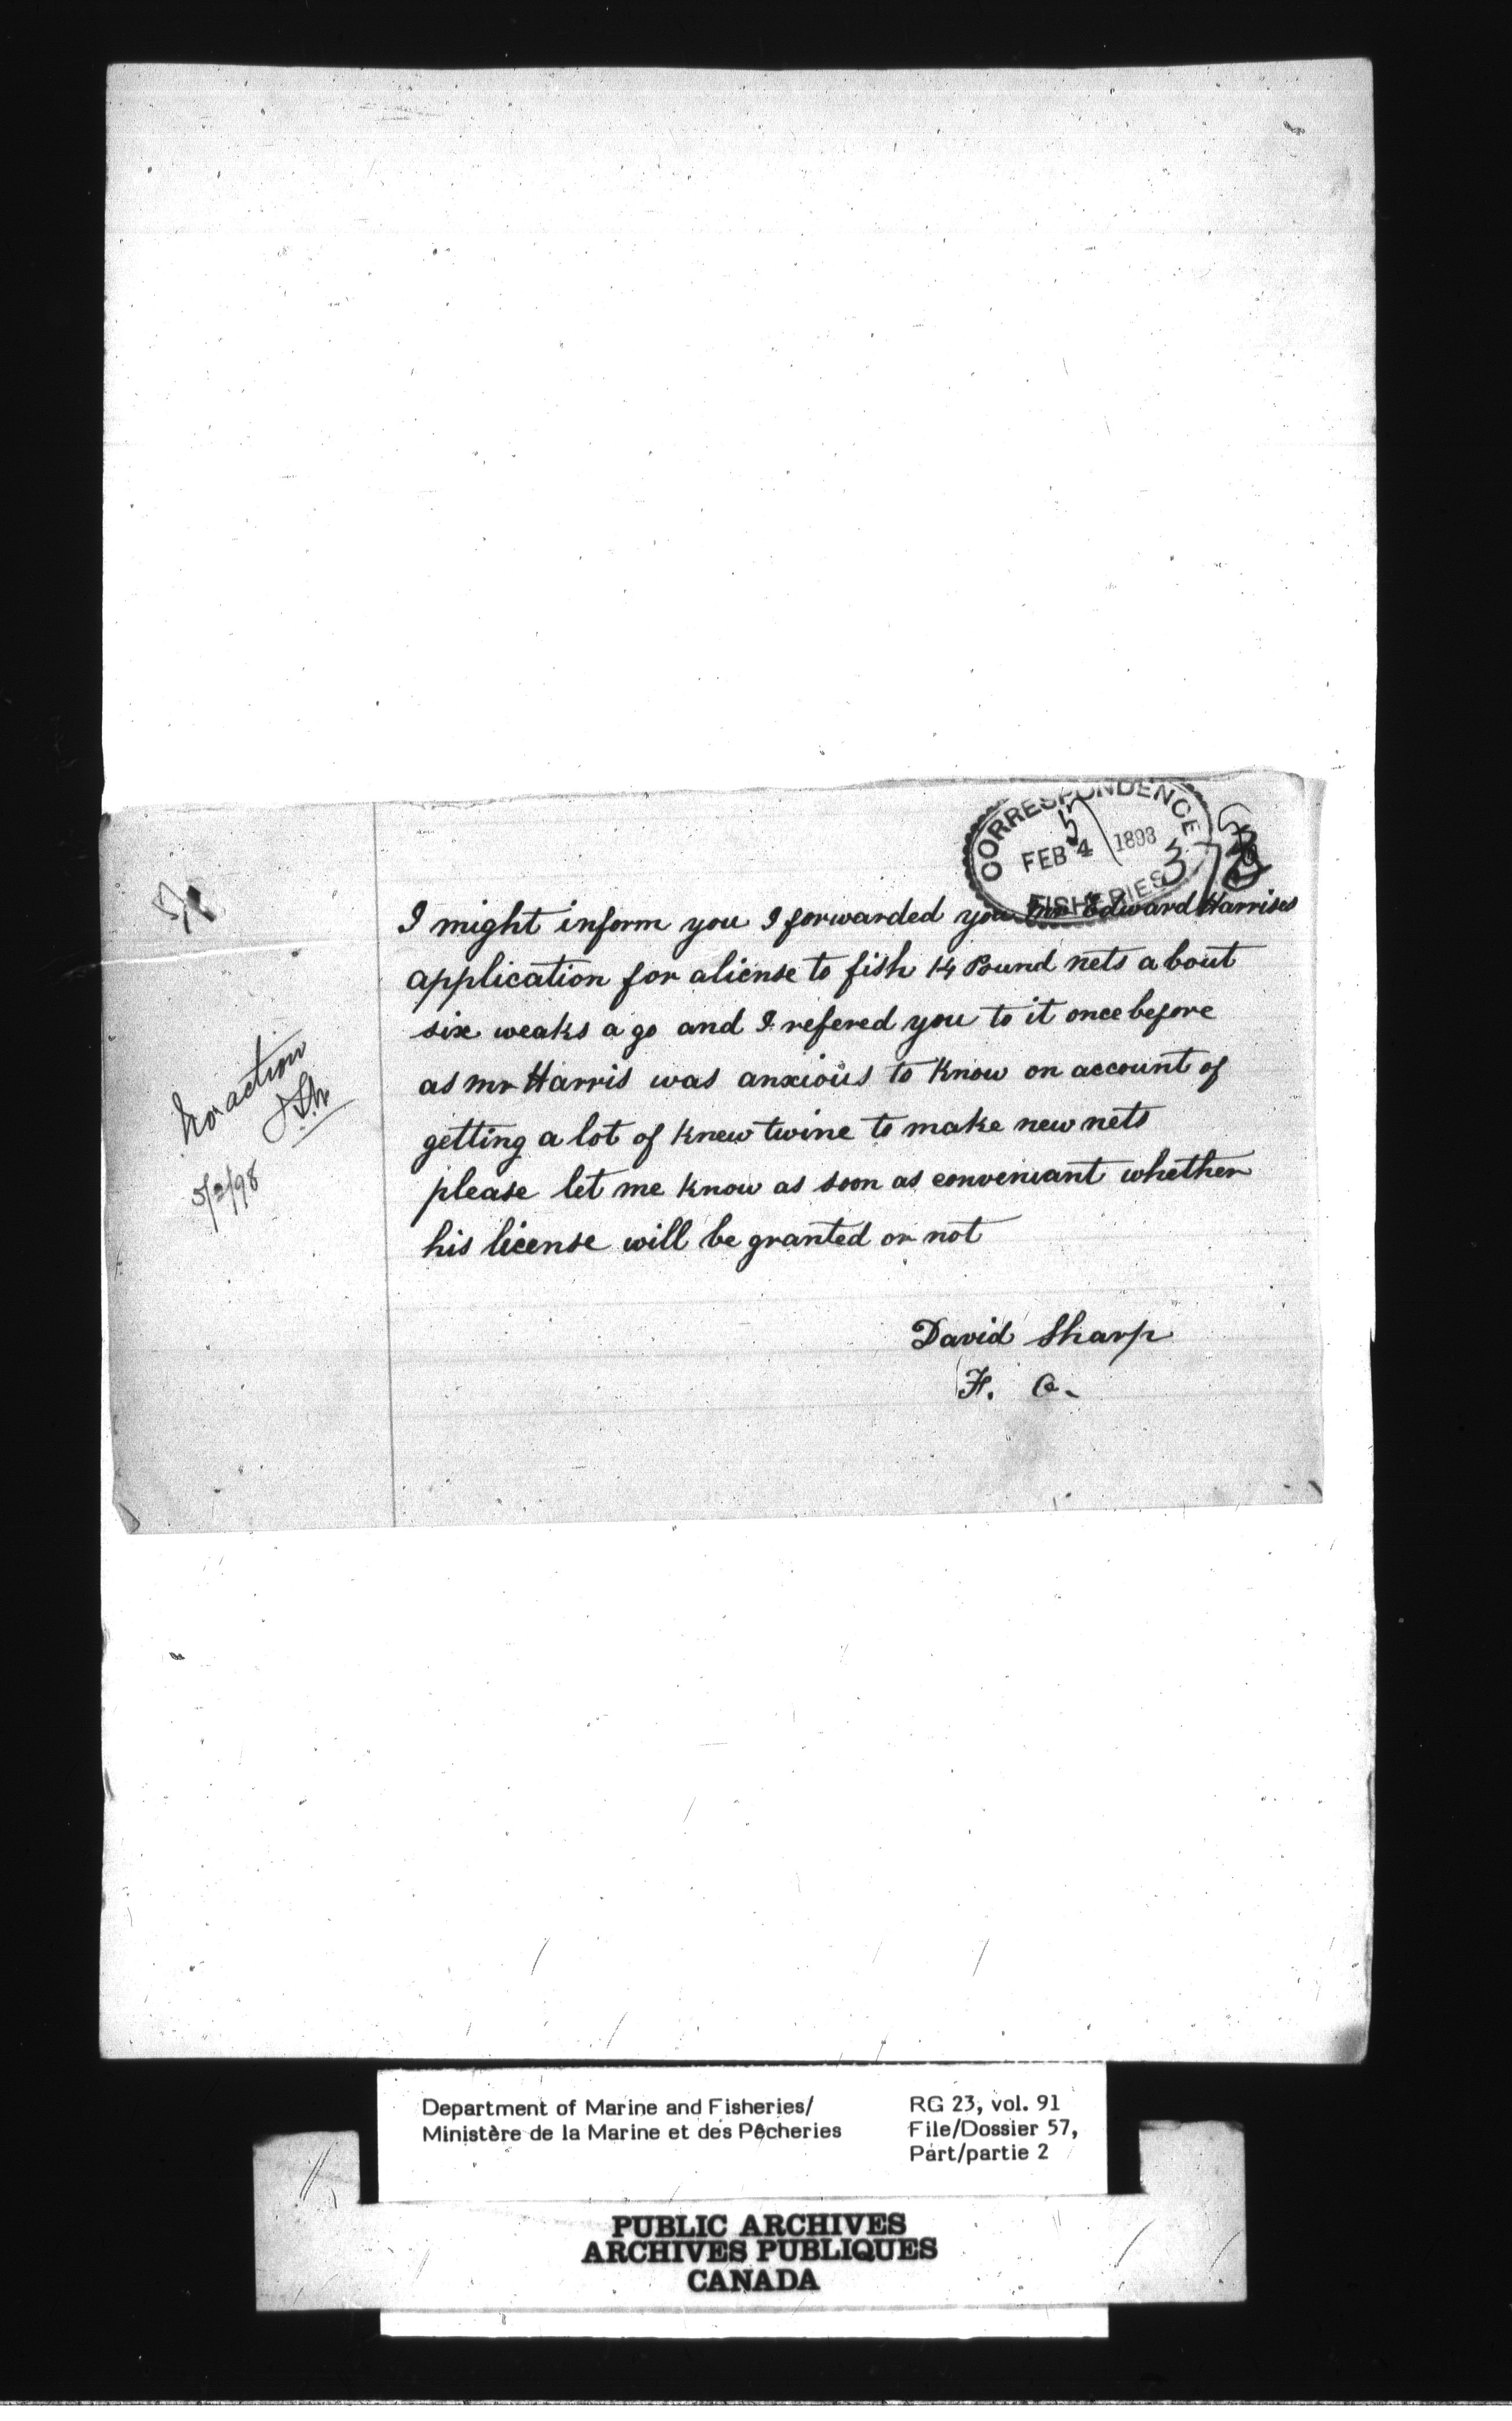 CORRESPONDENCE
5
FEB 4 1898
FISHERIES
I might inform you I forwarded you Mr Edward Harrises
application for aliense to fish 14 Pound nets a bout
six weaks a go and I refered you to it once before
as mr Harris was anxious to Know on account of
getting a lot of Knew twine to make new nets
please let me Know as soon as conveniant whether
his license will be granted or not
David Sharp
F. O.
No action
5/2/98
Department of Marine and Fisheries/
Ministère de la Marine et des Pêcheries
RG 23, vol. 91
File/Dossier 57,
Part/partie 2
PUBLIC ARCHIVES
ARCHIVES PUBLIQUES
CANADA